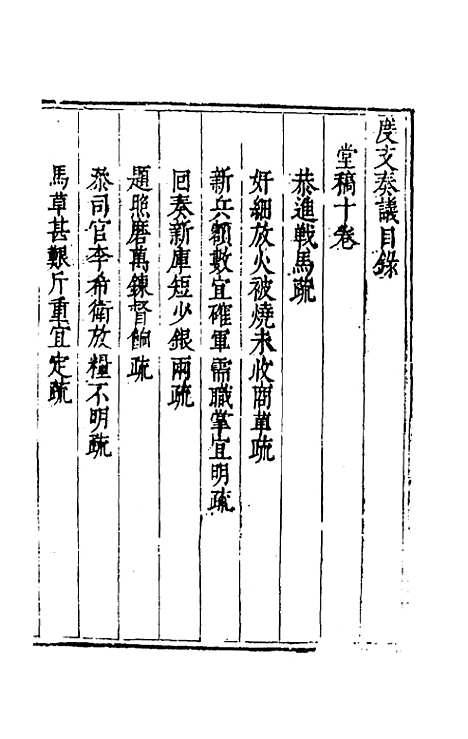 度支奏議目錄
堂稿十卷
恭進戰馬疏
奸細放火被燒未收商草疏
新兵額數宜確軍需職掌宜明疏
囘奏新庫短少銀兩疏
題照磨萬鍊督餉疏
叅司官李希衛放糧不明疏
馬草甚艱斤重宜定疏